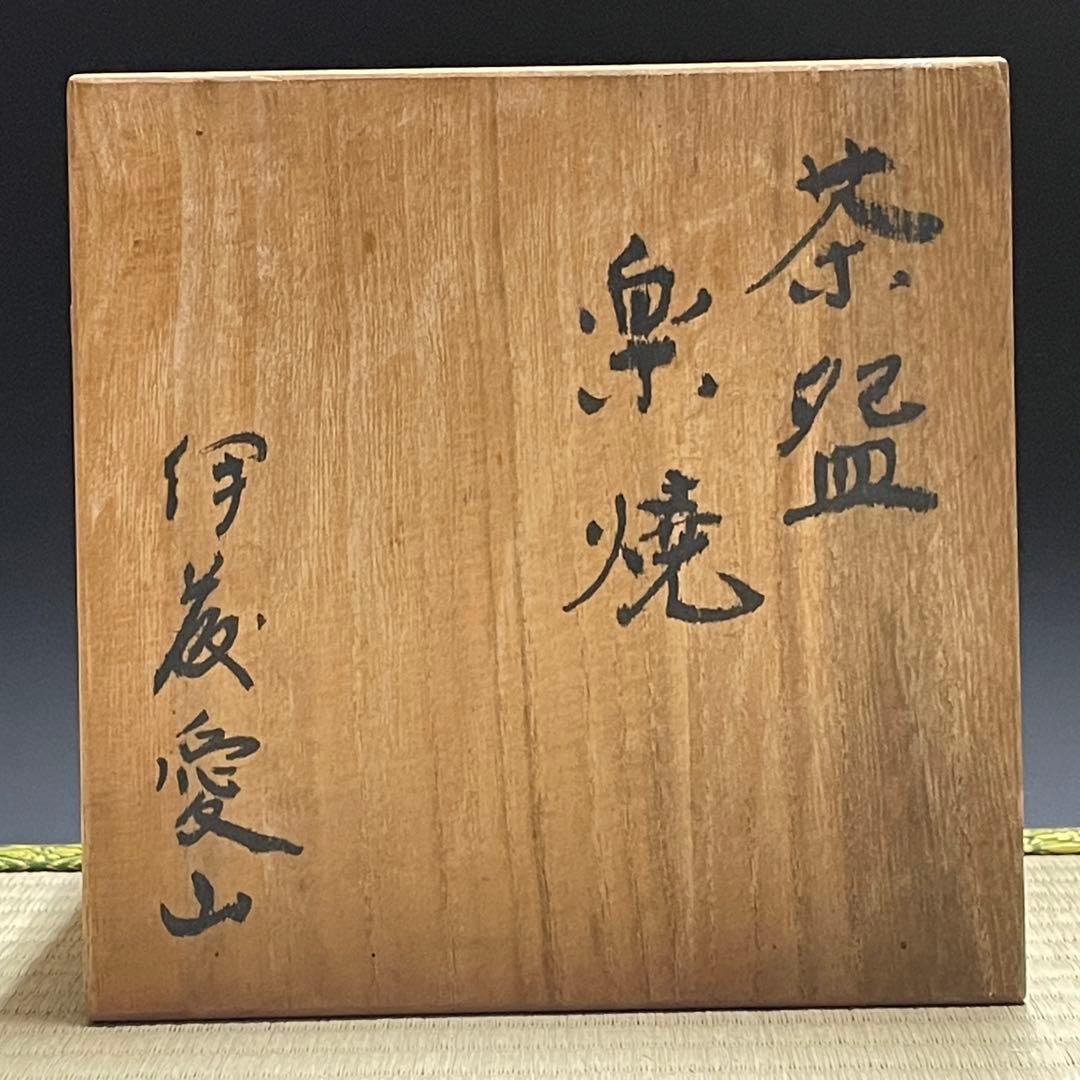 茶盌
楽焼
伊藤愛山